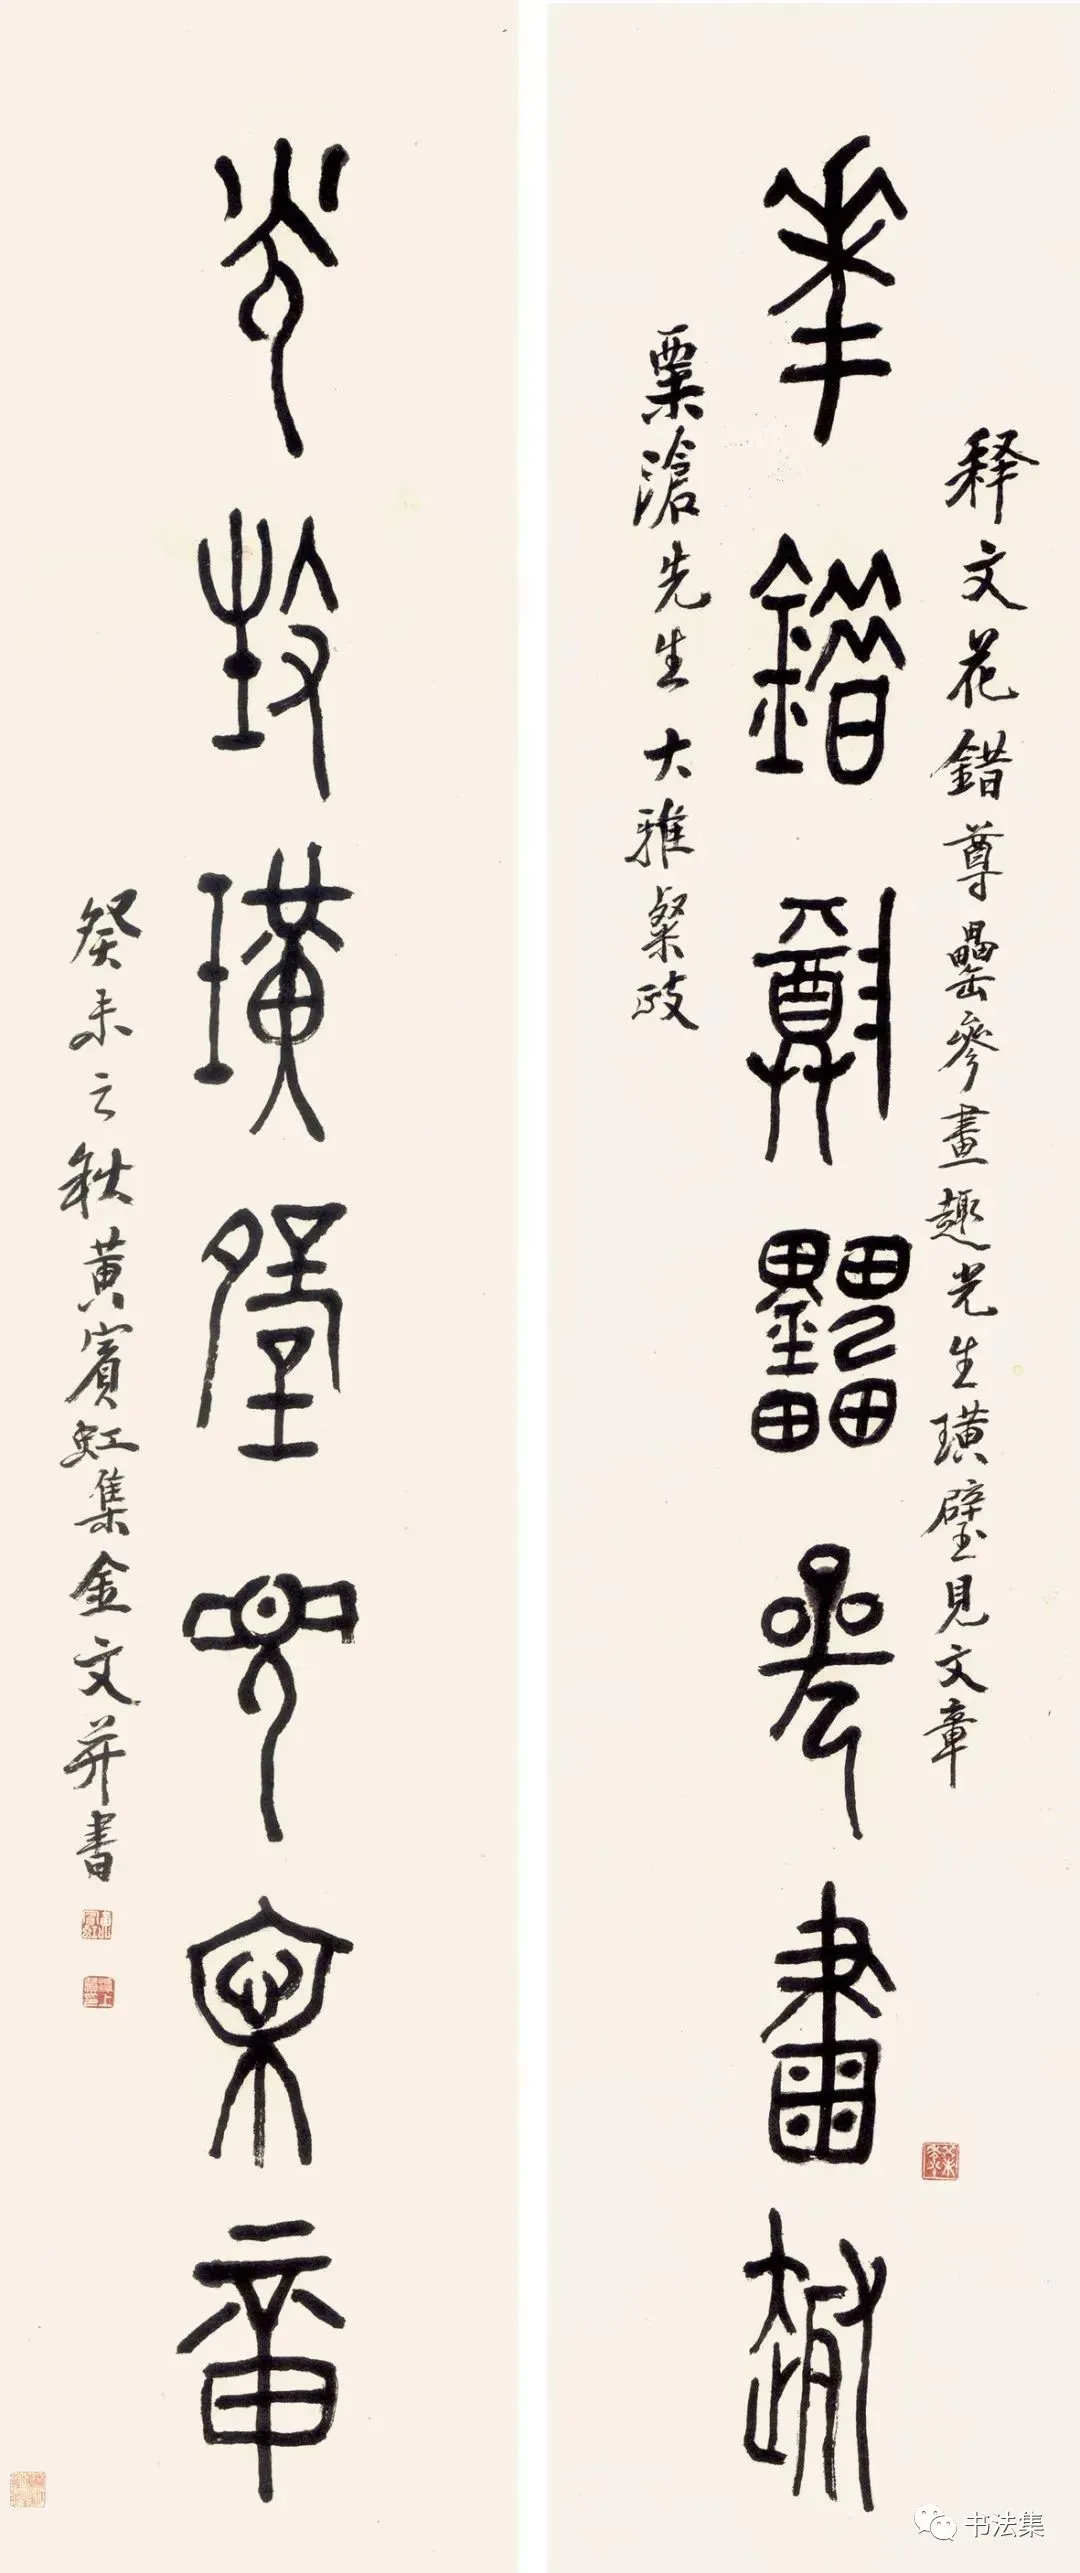 释文花錯尊罍參畫趣光生璜璧見文章
華錯尊罍參畫趣
粟滄先生大雅粲政
光生璜璧見文章
癸未之秋黃賓虹集金文并書
书法集